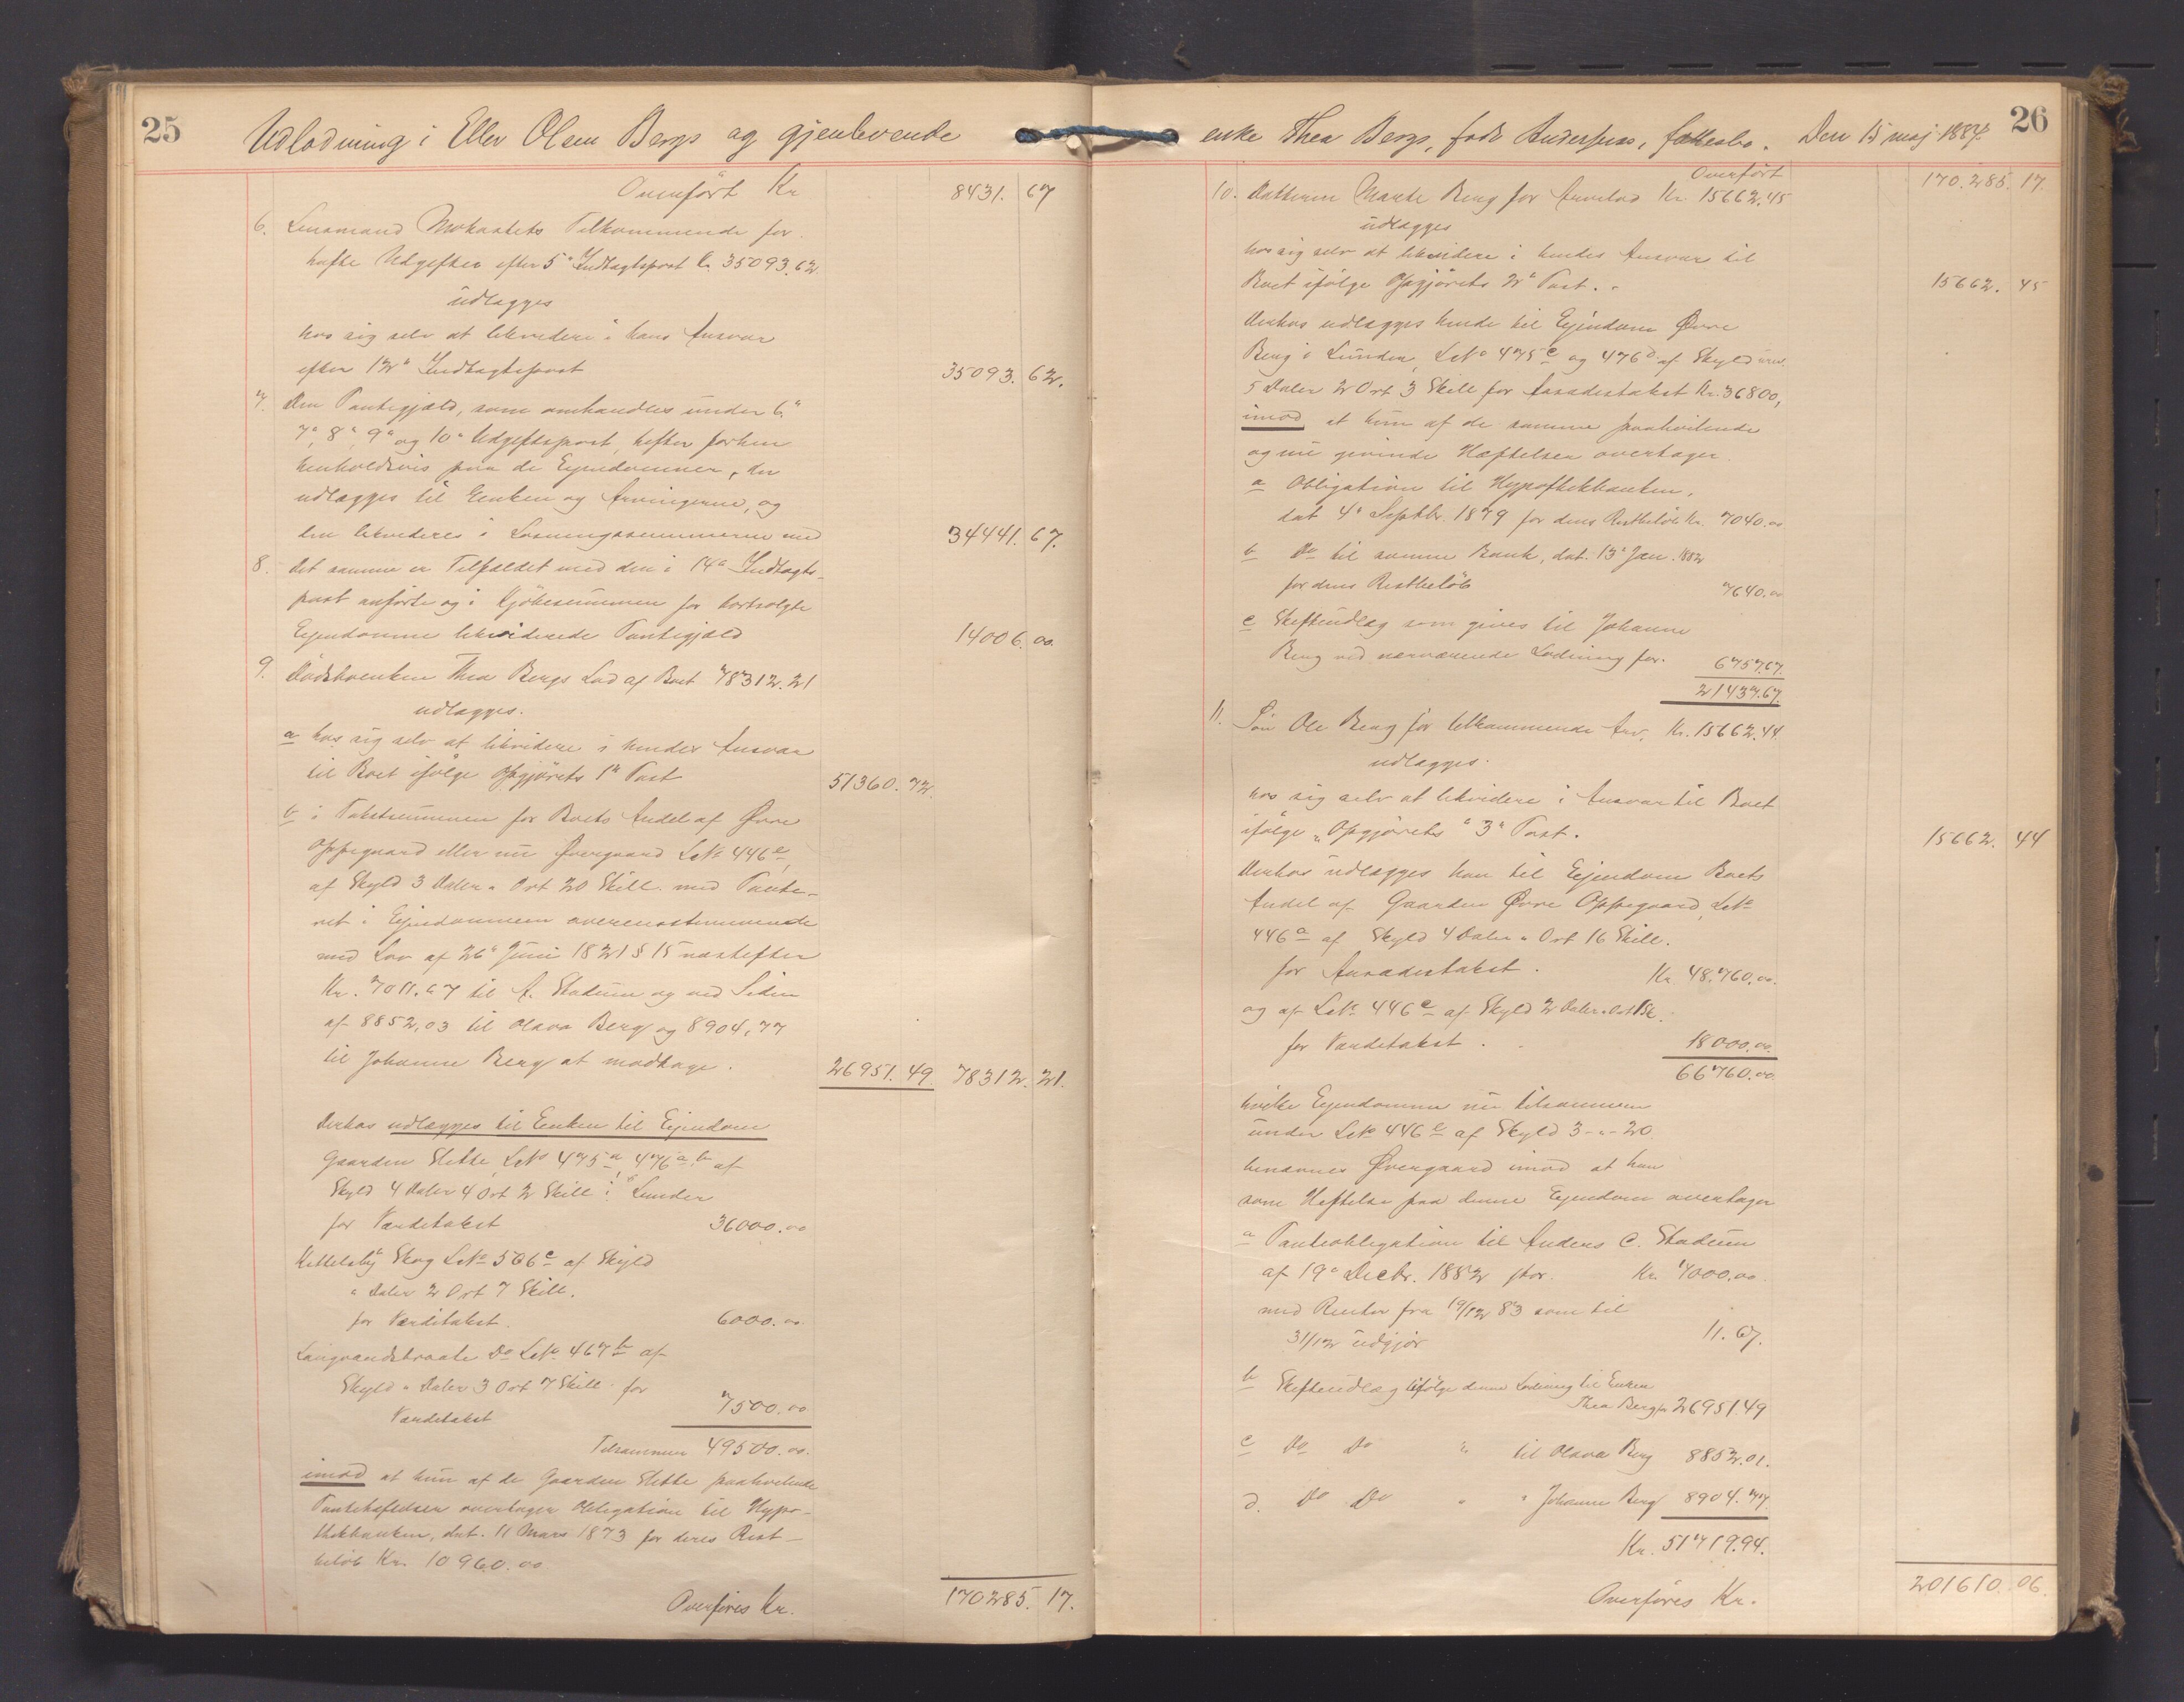 25
Udlodning i Ellev Olsen Bergs og gjenlevende
Overført Kr 8431. 67
6. Lensmand Mokastets Tilkommende for
hafte Udgifter efter 5te Indtagtspost Kr. 35093.62
udlægges
hos sig selv at likvidere i hans Ansvar
efter 12te Indtagtspost 35093. 62.
7. Den Pantegjæld, som omhandles under 6te
7de, 8de, 9de og 10de Udgiftspost, hefter
henholdsvis paa de Eiendomme, der
udlægges til Enken og Arvingerne, og
den likvideres i Løsningssummerne med 34441. 67.
8. Det samme er Tilfældet med den i 14de Indtagts-
post anførte og i Kjøbesummen for bortsolgte
Eiendomme likviderede Pantegjæld 14006. 00.
9. Dødsboenken Thea Bergs Lod af Boet 78312.21
udlægges.
a hos sig selv at likvidere i hendes Ansvar
til Boet ifølge Opgjørets 1ste Post 51360. 72.
b i Takstsummen for Boets Andel af Øvre
Oppegaard eller nu Øvergaard LNo 446e,
af Skyld 3 Daler " Ort 20 Skill. med Pante-
ret i Ejendommen overensstemmende
med Lov af 26de Juni 1821 § 15 næstefter
Kr. 7011.67 til A. Stadum og ved Siden
af 8852.03 til Olava Berg og 8904.77
til Johanne Berg at modtage. 26951. 49. 78312. 21.
Derhos udlægges til Enken til Ejendom
Gaarden Slette, LNo 475a, 476a.b af
Skyld 4 Daler 4 Ort 2 Skill i Lunder
for Værditakst 36000.00
Kittelsby Skog LNo 506c af Skyld
" Daler 2 Ort 7 Skill.
for Værditakst. 6000.00
Langvandsbraate Do LNo 467b af
Skyld " Daler 3 Ort 7 Skill. for
Værditakst 7500.00
Tilsammen 49500.00.
imod at hun af de Gaarden Slette paahvilende
Pantehæftelser overtager Obligation til Hypo-
thekbanken, dat. 11 Mars 1873 for deres Rest-
beløb Kr. 10960.00
Overføres Kr. 170285. 17.
26
enke Thea Bergs, født Andersens, fællesbo. Den 15 maj 1884.
Overført 170.285. 17.
10. Datteren Marte Berg for Arvelod Kr. 15662.45
udlægges
hos sig selv at likvidere i hendes Ansvar til
Boet ifølge Opgjørets 2det Post. 15662. 45
Derhos udlægges hende til Ejendom Øvre
Berg i Lunder, LNo 475c og 476d af Skyld
5 Daler 2 Ort 3 Skill for Aasædestakst Kr. 36800,
imod at hun af de samme paahvilende
og nu givende Hæftelser overtager
a Obligation til Hypothekbanken,
dat 4de Septbr. 1879 for dens Restbeløb Kr. 7040.00
b Do til samme Bank, dat. 13de Jan. 1882
for dens Restbeløb 7640.00
c Skifteudlæg som gives til Johanne
Berg ved nærværende Lodning for. 6757.67.
21437.67.
11. Søn Ole Berg for tilkommende Arv, Kr. 15662.44
udlægges.
hos sig selv at likvidere i Ansvar til Boet
ifølge "Opgjørets" 3die Post. 15662. 44
Derhos udlægges han til Ejendom Boets
Andel af Gaarden Øvre Oppegaard, LNo
446a af Skyld 4 Daler " Ort 16 Skill.
for Aasædestakst. Kr 48.760.00.
og af LNo 446e af Skyld 2 Daler " Ort
for Værditakst. 18000.00.
66760.00.
hvilke Ejendomme nu tilsammen
under LNo 446e af Skyld 3-"-20
benævnes Øvergaard imod at han
som Heftelse paa denne Ejendom overtager
a Panteobligation til Anders C. Stadum
af 19de Decbr. 1882 stor. Kr. 7000.00.
med Renter fra 19/12 83 som til
31/12 udgjør 11.67.
b Skifteudlæg ifølge denne Lodning til Enken
Thea Berg kr 26951.49
c Do Do " til Olava Berg 8852.01.
d. Do Do " " Johanne Berg 8904.77.
Kr. 51719.94.
Overføres Kr. 201610. 06.